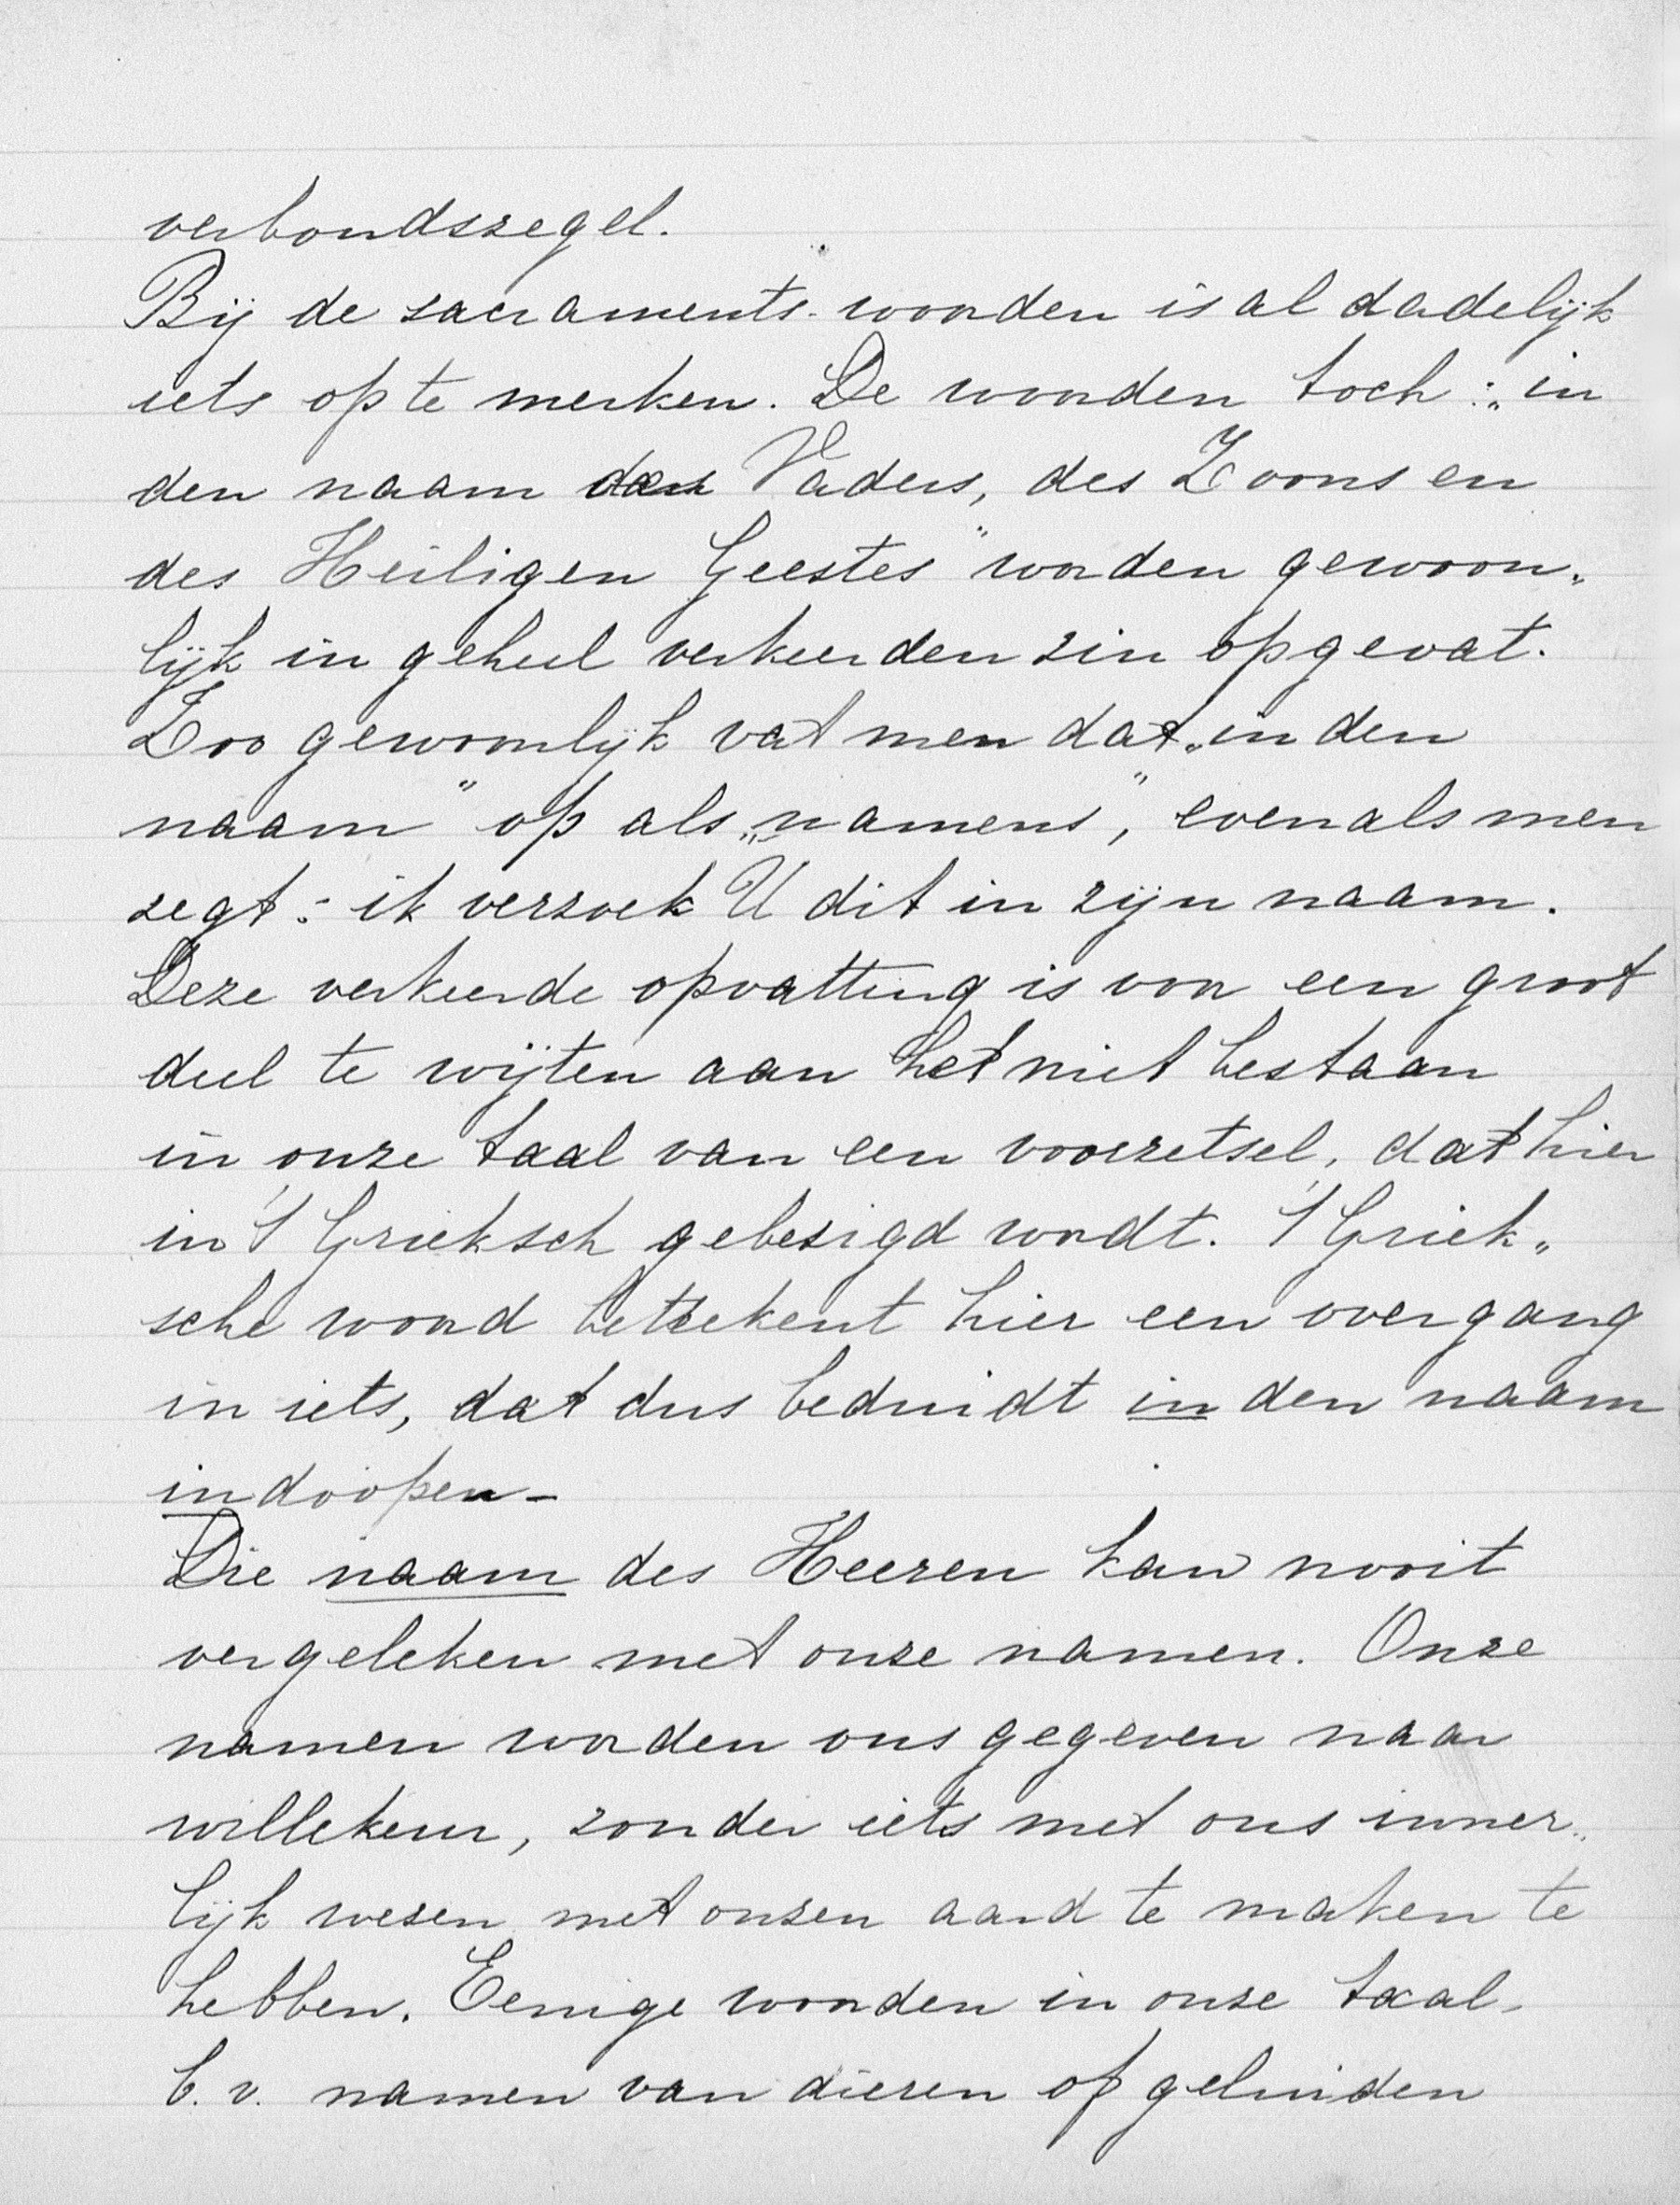 verbondszegel.
Bij de sacraments-woorden is al dadelijk
iets op te merken. De woorden toch: „in
den naam des Vaders, des Zoons en
des Heiligen Geestes" worden gewoon„
lijk in geheel verkeerden zin opgevat.
Zoo gewoonlijk vat men dat „in den
naam" op als „namens", evenals men
zegt: ik verzoek U dit in zijn naam.
Deze verkeerde opvatting is voor een groot
deel te wijten aan het niet bestaan
in onze taal van een voorzetsel, dat hier
in 't Grieksch gebezigd wordt. 't Griek„
sche woord beteekent hier een overgang
in iets, dat dus beduidt in den naam
indoopen –
Die naam des Heeren kan nooit
vergeleken met onze namen. Onze
namen worden ons gegeven naar
willekeur, zonder iets met ons inner„
lijk wezen met onzen aard te maken te
hebben. Eenige woorden in onze taal,
b.v. namen van dieren of geluiden